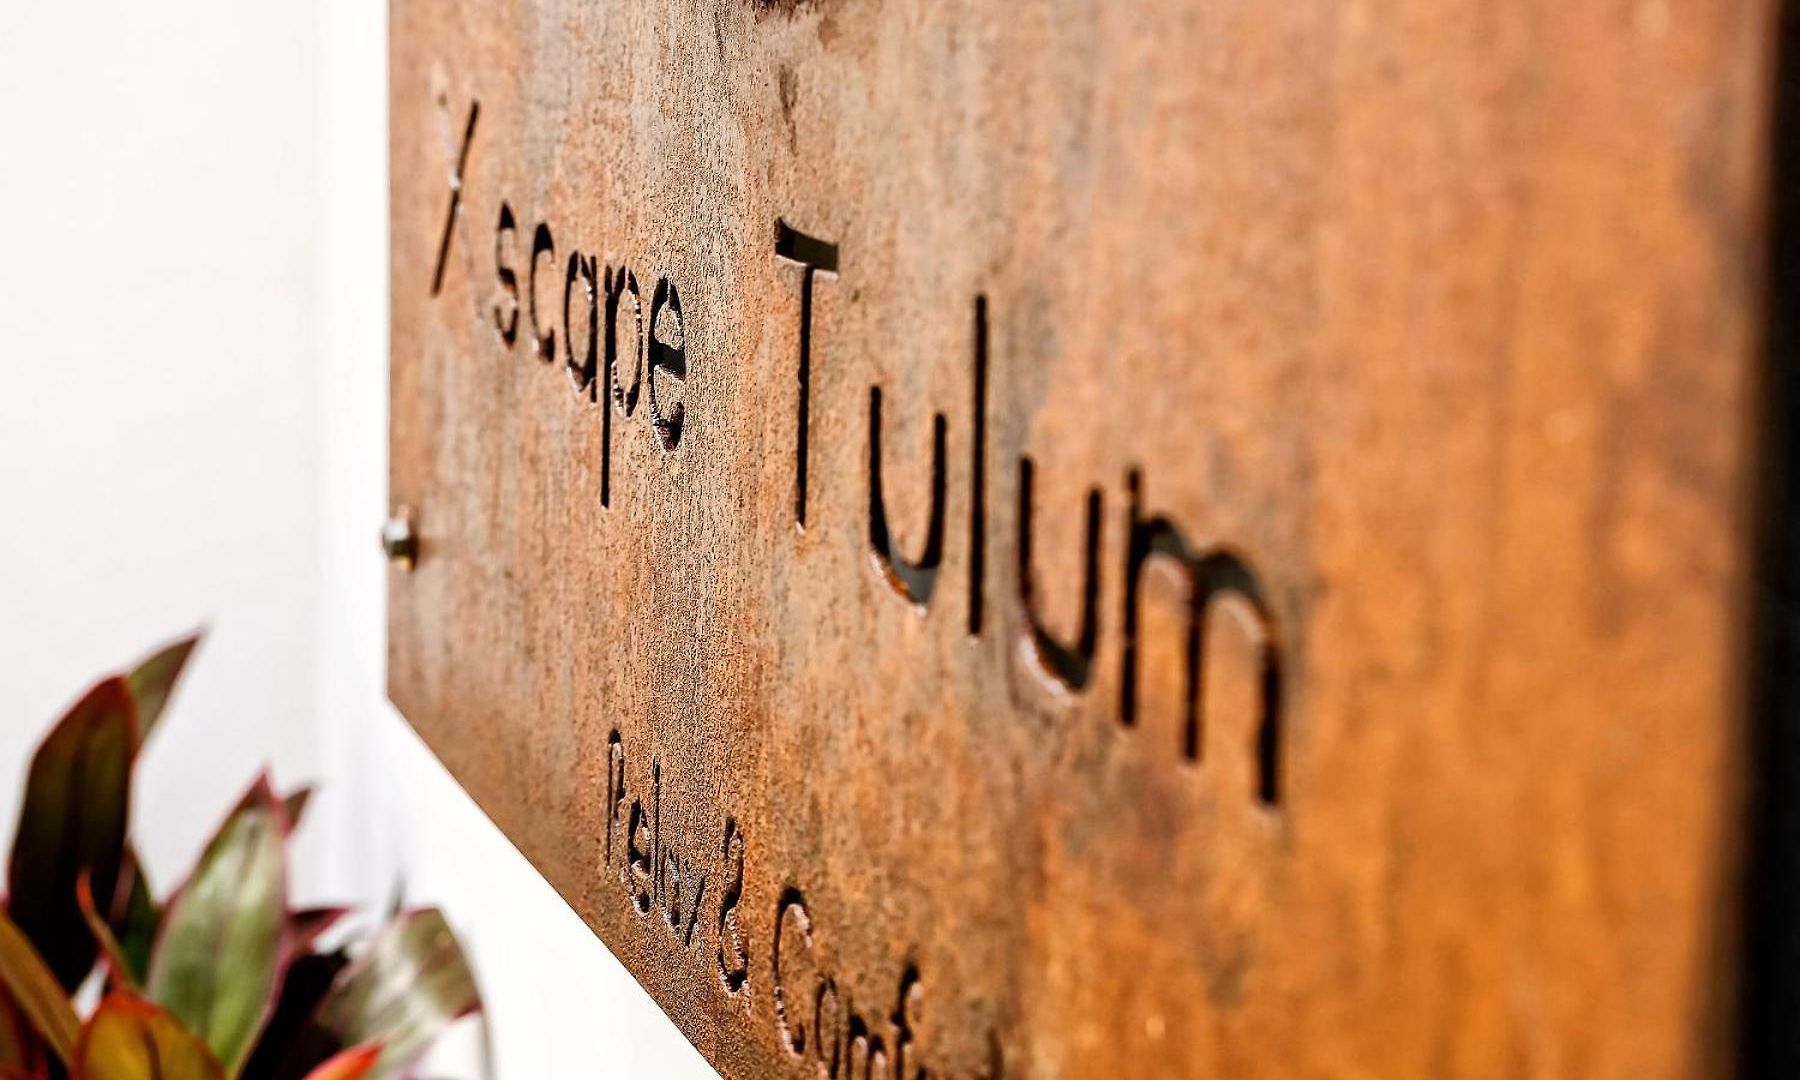 Xscape Tulum
Relax & Conf